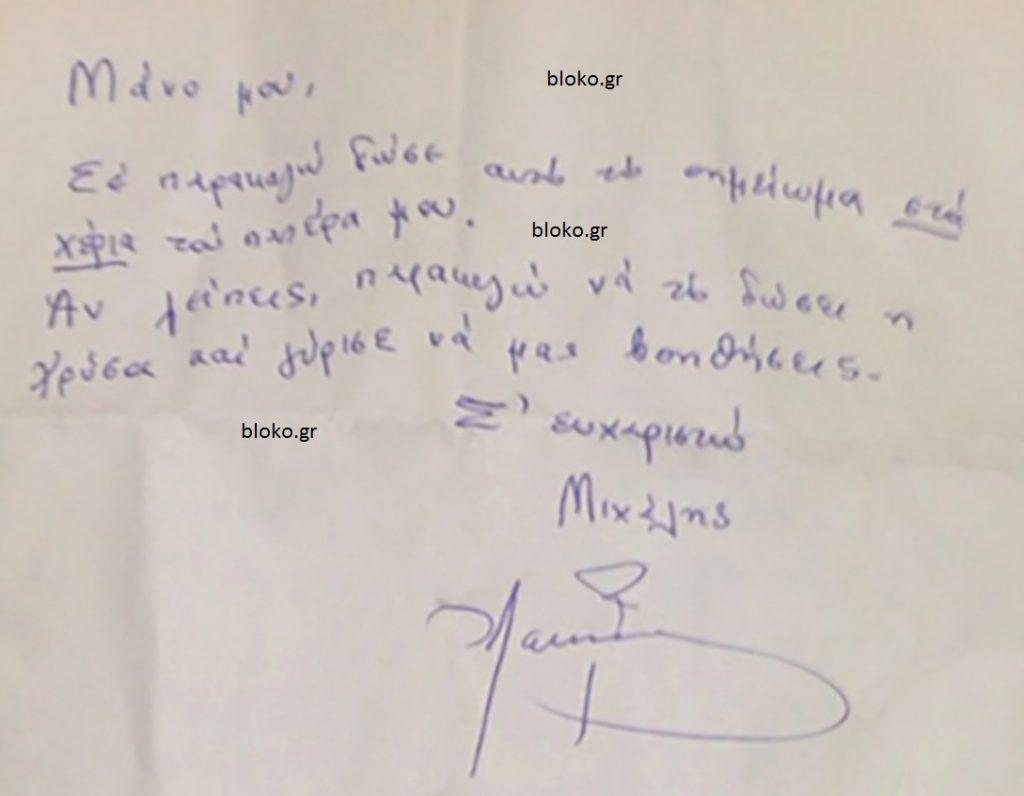 Μάνο μου,
bloko.gr
Σέ παρακαλώ δώσε αυτό τό σημείωμα στά
χέρια τού πατέρα μου.
bloko.gr
Άν λείπεις, παρακαλώ νά τό δώσει η
Χρύσα καί γύρισε νά μας βοηθήσεις.
bloko.gr
Σ' ευχαριστώ
Μιχάλης